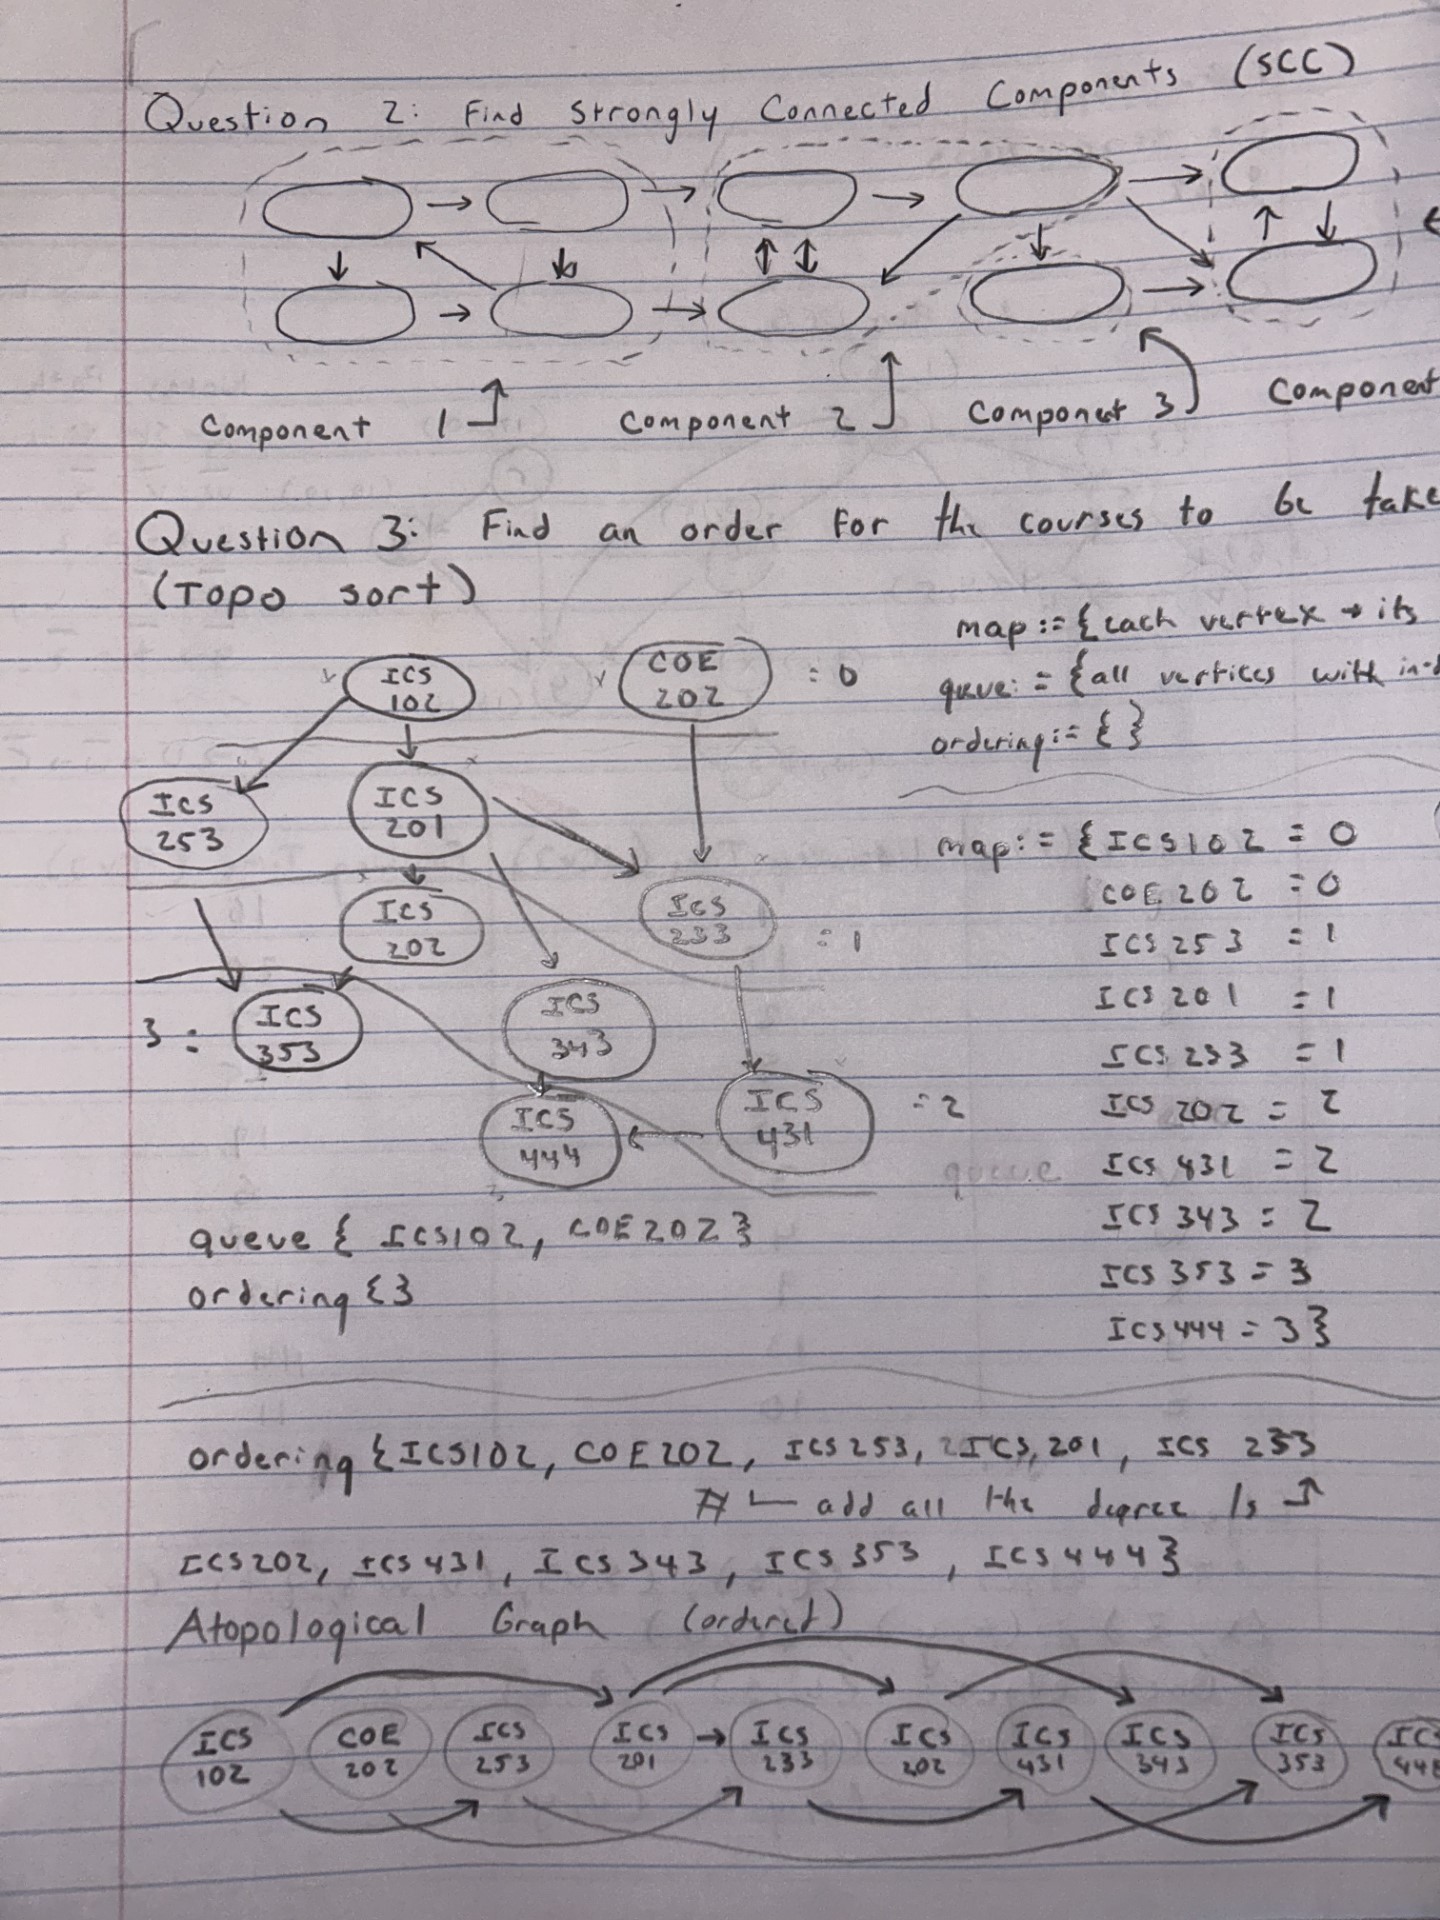 Question 2: Find Strongly Connected Components (SCC)
Component 1
Component 2
Componet 3
Component
Question 3: Find an order for the courses to be take
(Topo sort)
map := {each vertex → its
queue: = {all vertices with in-d
ordering := { }
ICS
102
COE
202
: 0
ICS
253
ICS
201
ICS
202
ICS
233
: 1
3 :
ICS
353
ICS
343
ICS
444
ICS
431
= 2
map: = {ICS102 = 0
COE 202 = 0
ICS 253 = 1
ICS 201 = 1
ICS 233 = 1
ICS 202 = 2
queue
ICS 431 = 2
ICS 343 = 2
ICS 353 = 3
ICS 444 = 3}
queue { ICS102, COE202}
ordering {}
ordering {ICS102, COE202, ICS253, ICS,201, ICS 233
add all the degree 1s
ICS202, ICS431, ICS343, ICS353, ICS444}
Atopological Graph (ordered)
ICS
102
COE
202
ICS
253
ICS
201
ICS
233
ICS
202
ICS
431
ICS
343
ICS
353
ICS